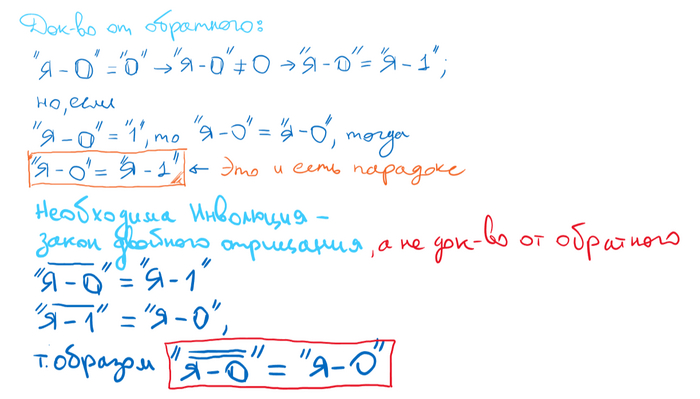 Док-во от обратного:
"Я-0" = "0" → "Я-0" ≠ 0 → "Я-0" = "Я-1";
но, если
"Я-0" = "1", то "Я-0" = "Я-0", тогда
"Я-0" = "Я-1" ← Это и есть парадокс
Необходима Инволюция –
закон двойного отрицания, а не док-во от обратного
"Я̅-̅0̅" = "Я-1"
"Я̅-̅1̅" = "Я-0",
т. образом "Я̿-̿0̿" = "Я-0"